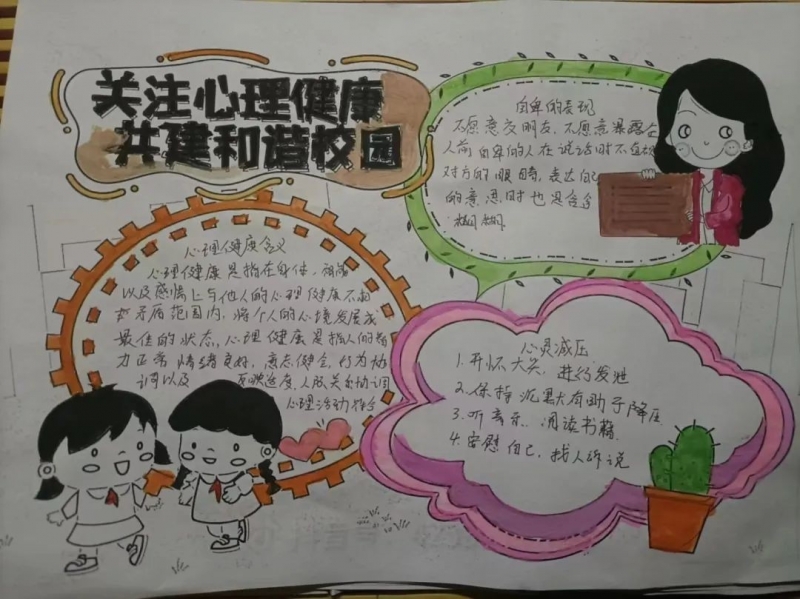 关注心理健康
共建和谐校园
自卑的表现
不愿意交朋友，不愿意暴露在
人前自卑的人在说话时不直视
对方的眼睛，表达自己
的意思时也是含含
糊糊
心理健康含义
心理健康是指在身体、
以及感情上与他人的心理健康不相
矛盾范围内，将个人的心境发展成
最佳的状态，心理健康是指人的智
力正常情绪良好，意志健全，行为协
调以及 反映适度，人际关系协调
心理活动符合
心灵减压
1.开怀大笑、进行发泄
2.保持沉默有助于降压
3.听音乐、阅读书籍
4.安慰自己，找人诉说